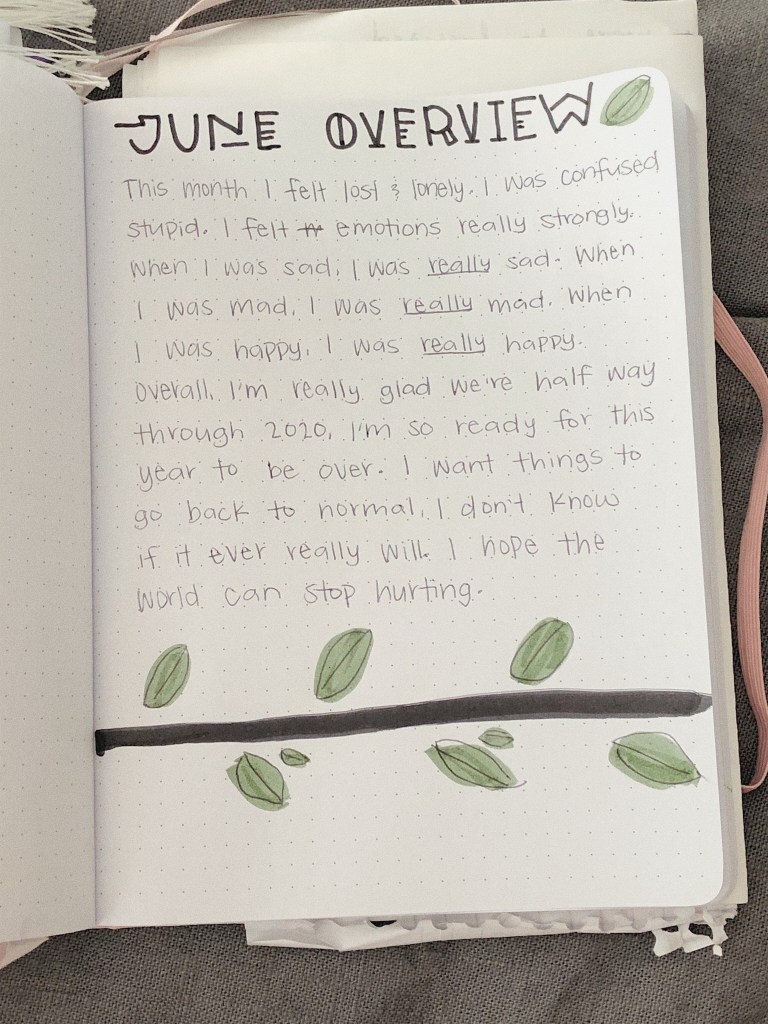 JUNE OVERVIEW
This month I felt lost & lonely. I was confused
stupid. I felt emotions really strongly.
When I was sad, I was really sad. When
I was mad, I was really mad. When
I was happy, I was really happy.
Overall, I'm really glad we're half way
through 2020, I'm so ready for this
year to be over. I want things to
go back to normal, I don't know
if it ever really will. I hope the
world can stop hurting.